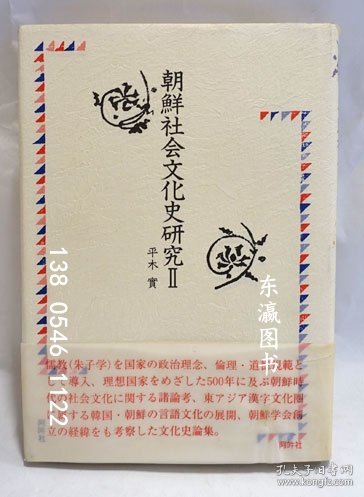 朝鮮社会文化史研究Ⅱ
平木 實
東瀛图书
138 0546 1122
儒教(朱子学)を国家の政治理念、倫理・道徳規範と
導入、理想国家をめざした500年に及ぶ朝鮮時
社会文化に関する諸論考、東アジア漢字文化圏
する韓国・朝鮮の言語文化の展開、朝鮮学会創
立の経緯をも考察した文化史論集。
阿吽社
阿吽社
孔夫子旧书网